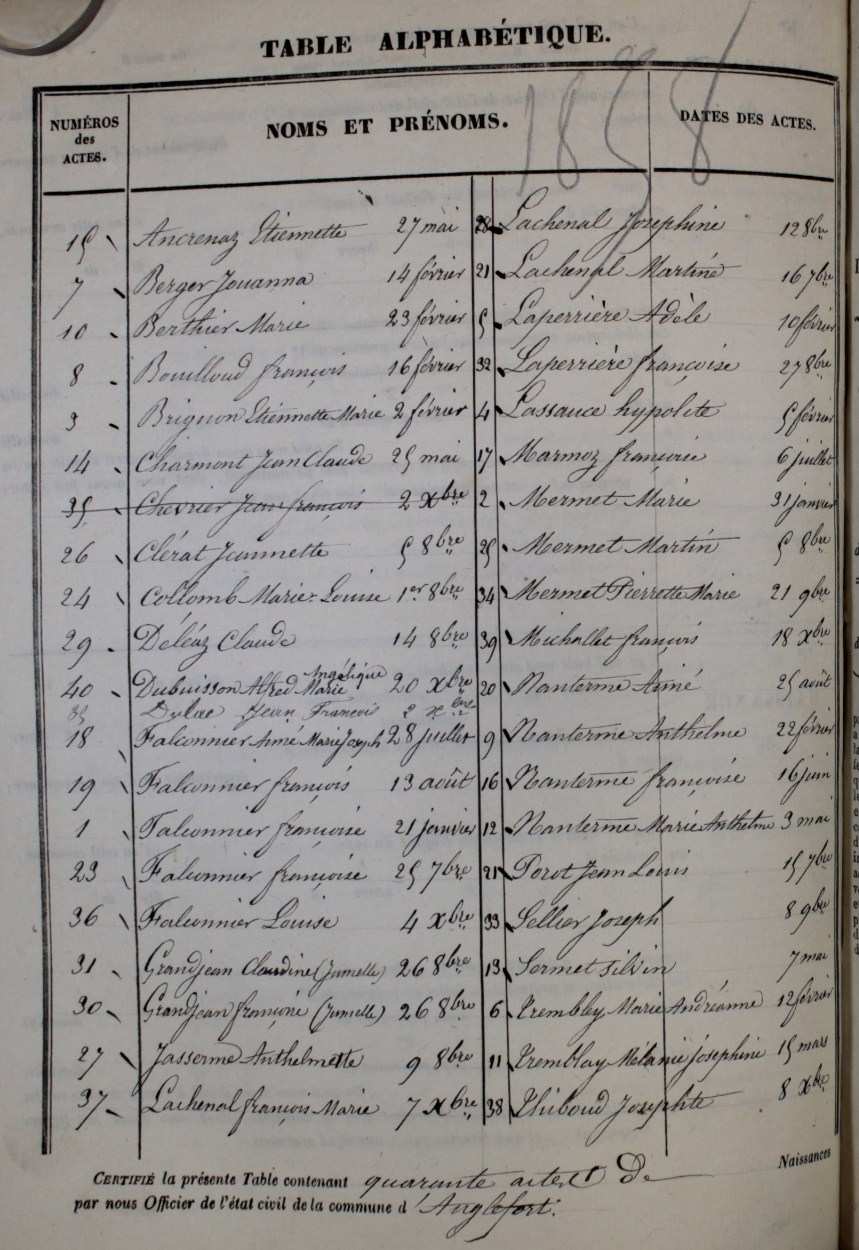 TABLE ALPHABÉTIQUE.
1858
NUMÉROS des ACTES.
NOMS ET PRÉNOMS.
DATES DES ACTES.
15 Ancrenaz Etiennette 27 mai
7 Berger Jouanna 14 février
10 Berthier Marie 23 février
8 Bouilloud françois 16 février
3 Brignon Etiennette Marie 2 février
14 Charmont Jean Claude 25 mai
35 Chevrier Jean françois 2 Xbre
26 Clérat Jeannette 5 8bre
24 Collomb Marie-Louise 1er 8bre
29 Déléaz Claude 14 8bre
40 Dubuisson Alfred Marie Angélique 20 Xbre
35 Jean François 2 Xbre
18 Falconnier Aimé Marie Joseph 28 juillet
19 Falconnier françois 13 août
1 Falconnier françoise 21 janvier
23 Falconnier françoise 25 7bre
36 Falconnier Louise 4 Xbre
31 Grandjean Claudine (Jumelle) 26 8bre
30 Grandjean françoise (Jumelle) 26 8bre
27 Jasserme Anthelmette 9 8bre
37 Lachenal françois Marie 7 Xbre
28 Lachenal Josephine 12 8bre
21 Lachenal Martine 16 7bre
5 Laperrière Adèle 10 février
32 Laperrière françoise 27 8bre
4 Lassauce hypolite 5 février
17 Marmoz françoise 6 juillet
2 Mermet Marie 31 janvier
25 Mermet Martin 5 8bre
34 Mermet Pierrette Marie 21 9bre
39 Michallet françois 18 Xbre
20 Nanterme Aimé 25 août
9 Nanterme Anthelme 22 février
16 Nanterme françoise 16 juin
12 Nanterme Marie Anthelme 3 mai
21 Porot Jean Louis 15 7bre
33 Sellier Joseph 8 9bre
13 Sermet silvin 7 mai
6 Trembley Marie Andréanne 12 février
11 Tremblay Mélanie Josephine 15 mars
38 Thiboud Josephte 8 Xbre
CERTIFIÉ la présente Table contenant quarante actes de Naissances
par nous Officier de l'état civil de la commune d'Anglefort.